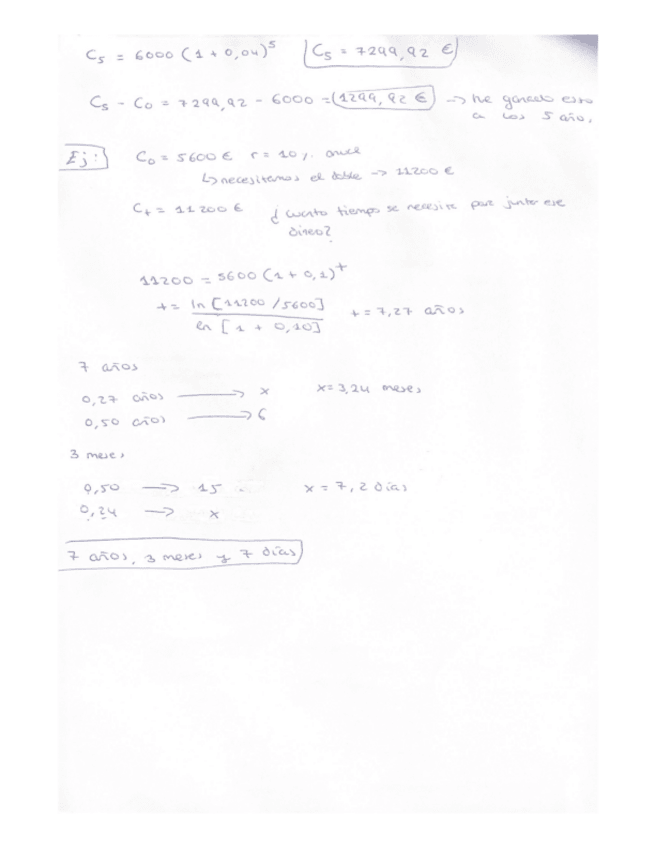 C₅ = 6000 (1 + 0,04)⁵ C₅ = 7299,92 €
C₅ - C₀ = 7299,92 - 6000 = (1299,92 €) -> he ganado esto
a los 5 año,
Ej: C₀ = 5600 € r = 10 %. anual
↳ necesitamos el doble -> 11200 €
Ct = 11200 € ¿ cuanto tiempo se necesita para juntar ese
dinero?
11200 = 5600 (1 + 0,1)^t
t = ln [11200 / 5600] / ln [1 + 0,10] t = 7,27 años
7 años
0,27 años -> x x = 3,24 meses
0,50 años -> 6
3 meses
0,50 -> 15 x = 7,2 días
0,24 -> x
7 años, 3 meses y 7 días